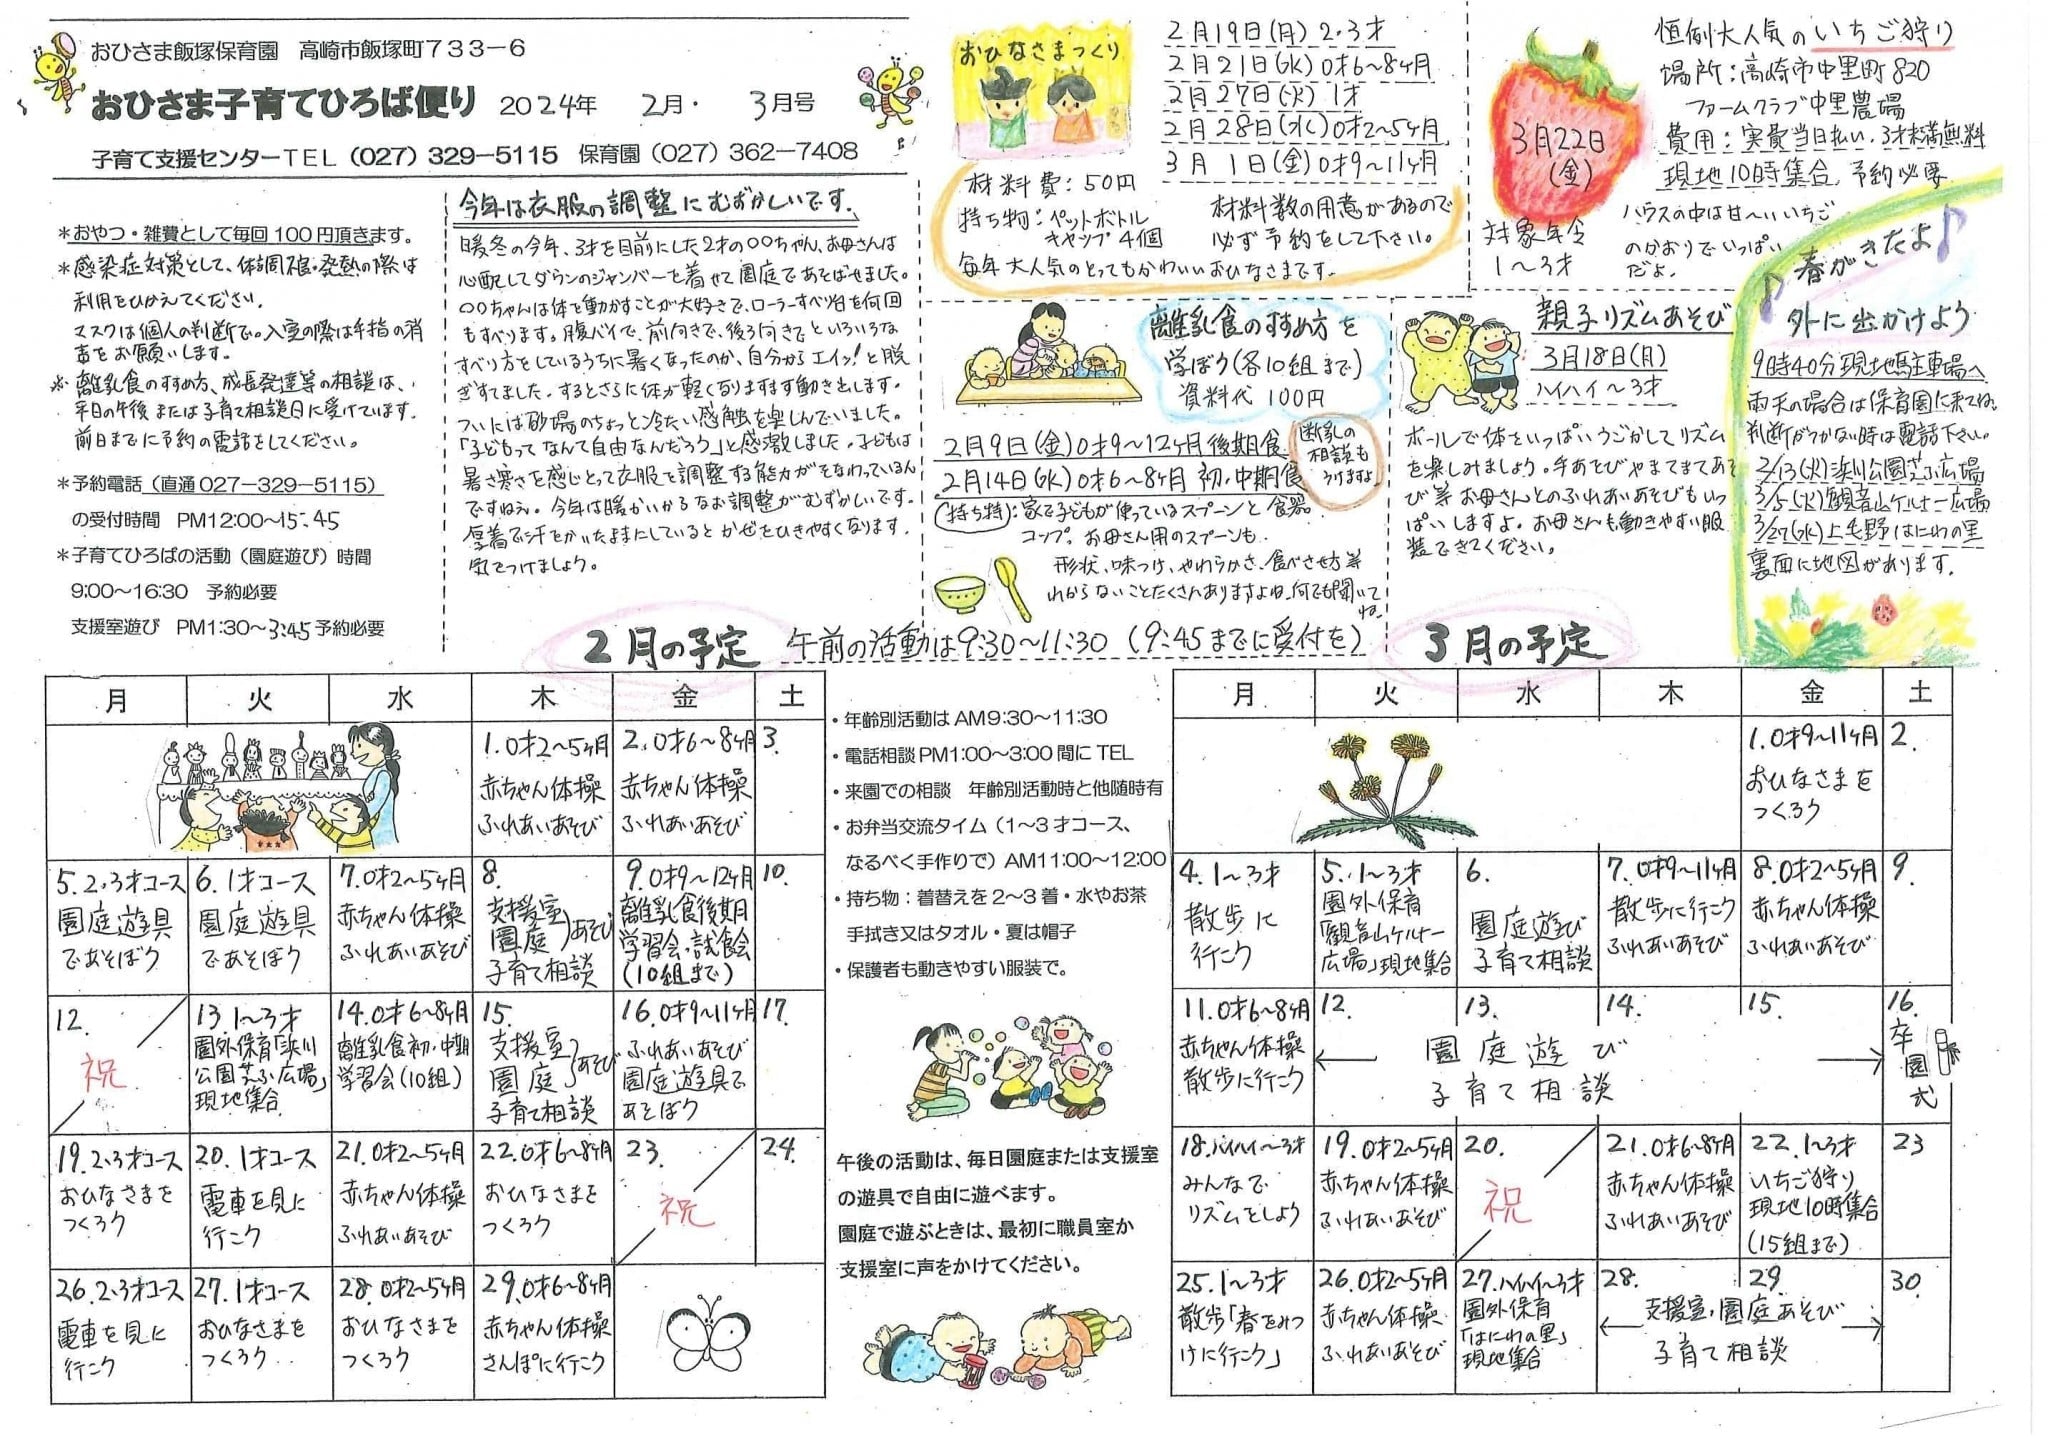 おひさま飯塚保育園　高崎市飯塚町７３３－６
おひさま子育てひろば便り 2024年　2月・　3月号
子育て支援センターＴＥＬ（027）329－5115　保育園（027）362－7408
＊おやつ・雑費として毎回100円頂きます。
＊感染症対策として、体調不良・発熱の際は
利用をひかえてください。
マスクは個人の判断で。入室の際は手指の消
毒をお願いします。
＊離乳食のすすめ方、成長発達等の相談は、
平日の午後または子育て相談日に受けています。
前日までに予約の電話をしてください。
＊予約電話（直通027－329－5115）
の受付時間　PM12:00～15:45
＊子育てひろばの活動（園庭遊び）時間
9:00～16:30　予約必要
支援室遊び　PM1:30～3:45予約必要
今年は衣服の調整にむずかしいです。
暖冬の今年、3才を目前にした2才の〇〇ちゃん、お母さんは
心配してダウンのジャンバーを着せて園庭であそばせました。
〇〇ちゃんは体を動かすことが大好きで、ローラーすべり台を何回
もすべります。腹バイで、前向きで、後ろ向きでといろいろな
すべり方をしているうちに暑くなったのか、自分からエイッ！と脱
ぎすてました。するとさらに体が軽くなりますます動きだします。
ついには砂場のちょっと冷たい感触を楽しんでいました。
「子どもってなんて自由なんだろう」と感激しました。子どもは
暑さ寒さを感じとって衣服を調整する能力がそなわっているん
ですねぇ。今年は暖かいからなお調整がむずかしいです。
厚着で汗をかいたままにしているとかぜをひきやすくなります。
気をつけましょう。
おひなさまつくり
2月19日(月) 2・3才
2月21日(水) 0才6～8ヶ月
2月27日(火) 1才
2月28日(水) 0才2～5ヶ月
3月 1日(金) 0才9～11ヶ月
材料費：50円
持ち物：ペットボトル
キャップ 4個
材料数の用意があるので
必ず予約をして下さい。
毎年大人気のとってもかわいいおひなさまです。
3月22日
(金)
恒例大人気のいちご狩り
場所：高崎市中里町820
ファームクラブ中里農場
費用：実費当日払い、3才未満無料
現地10時集合、予約必要
対象年令
1～3才
ハウスの中は甘～いいちご
のかおりでいっぱい
だよ。
離乳食のすすめ方を
学ぼう(各10組まで)
資料代 100円
2月9日(金) 0才9～12ヶ月後期食
2月14日(水) 0才6～8ヶ月 初、中期食
断乳の
相談も
うけますよ
持ち物：家で子どもが使っているスプーンと食器
コップ。お母さん用のスプーンも。
形状、味つけ、やわらかさ、食べさせ方等
わからないことたくさんありますよね。何でも聞いて
ね。
親子リズムあそび
3月18日(月)
ハイハイ～3才
ボールで体をいっぱいうごかしてリズム
を楽しみましょう。手あそびやまてまてあそ
び等お母さんとのふれあいあそびもいっ
ぱいしますよ。お母さんも動きやすい服
装できてください。
春がきたよ
外に出かけよう
9時40分現地駐車場へ
雨天の場合は保育園に来てね。
判断がつかない時は電話下さい。
2/13(火)浜川公園芝ふ広場
3/5(火)観音山ケルナー広場
3/27(水)上毛野はにわの里
裏面に地図があります。
2月の予定　午前の活動は9:30～11:30（9:45までに受付を）　3月の予定
月　火　水　木　金　土
1. 0才2～5ヶ月
赤ちゃん体操
ふれあいあそび
2. 0才6～8ヶ月
赤ちゃん体操
ふれあいあそび
3.
5. 2、3才コース
園庭遊具
であそぼう
6. 1才コース
園庭遊具
であそぼう
7. 0才2～5ヶ月
赤ちゃん体操
ふれあいあそび
8.
支援室
園庭 ）あそび
子育て相談
9. 0才9～12ヶ月
離乳食後期
学習会・試食会
(10組まで)
10.
12.
祝
13. 1～3才
園外保育「浜川
公園芝ふ広場」
現地集合
14. 0才6～8ヶ月
離乳食初・中期
学習会(10組)
15.
支援室
園庭 ）あそび
子育て相談
16. 0才9～11ヶ月
ふれあいあそび
園庭遊具で
あそぼう
17.
19. 2、3才コース
おひなさまを
つくろう
20. 1才コース
電車を見に
行こう
21. 0才2～5ヶ月
赤ちゃん体操
ふれあいあそび
22. 0才6～8ヶ月
おひなさまを
つくろう
23.
祝
24.
26. 2、3才コース
電車を見に
行こう
27. 1才コース
おひなさまを
つくろう
28. 0才2～5ヶ月
おひなさまを
つくろう
29. 0才6～8ヶ月
赤ちゃん体操
さんぽに行こう
・年齢別活動はAM9:30～11:30
・電話相談PM1:00～3:00間にTEL
・来園での相談　年齢別活動時と他随時有
・お弁当交流タイム（1～3才コース、
なるべく手作りで）AM11:00～12:00
・持ち物：着替えを2～3着・水やお茶
手拭き又はタオル・夏は帽子
・保護者も動きやすい服装で。
午後の活動は、毎日園庭または支援室
の遊具で自由に遊べます。
園庭で遊ぶときは、最初に職員室か
支援室に声をかけてください。
月　火　水　木　金　土
1. 0才9～11ヶ月
おひなさまを
つくろう
2.
4. 1～3才
散歩に
行こう
5. 1～3才
園外保育
「観音山ケルナー
広場」現地集合
6.
園庭遊び
子育て相談
7. 0才9～11ヶ月
散歩に行こう
ふれあいあそび
8. 0才2～5ヶ月
赤ちゃん体操
ふれあいあそび
9.
11. 0才6～8ヶ月
赤ちゃん体操
散歩に行こう
12.　13.　14.　15.
園庭遊び
子育て相談
16.
卒園式
18. ハイハイ～3才
みんなで
リズムをしよう
19. 0才2～5ヶ月
赤ちゃん体操
ふれあいあそび
20.
祝
21. 0才6～8ヶ月
赤ちゃん体操
ふれあいあそび
22. 1～3才
いちご狩り
現地10時集合
(15組まで)
23
25. 1～3才
散歩「春をみつ
けに行こう」
26. 0才2～5ヶ月
赤ちゃん体操
ふれあいあそび
27. ハイハイ～3才
園外保育
「はにわの里」
現地集合
28.　29.
支援室、園庭あそび
子育て相談
30.